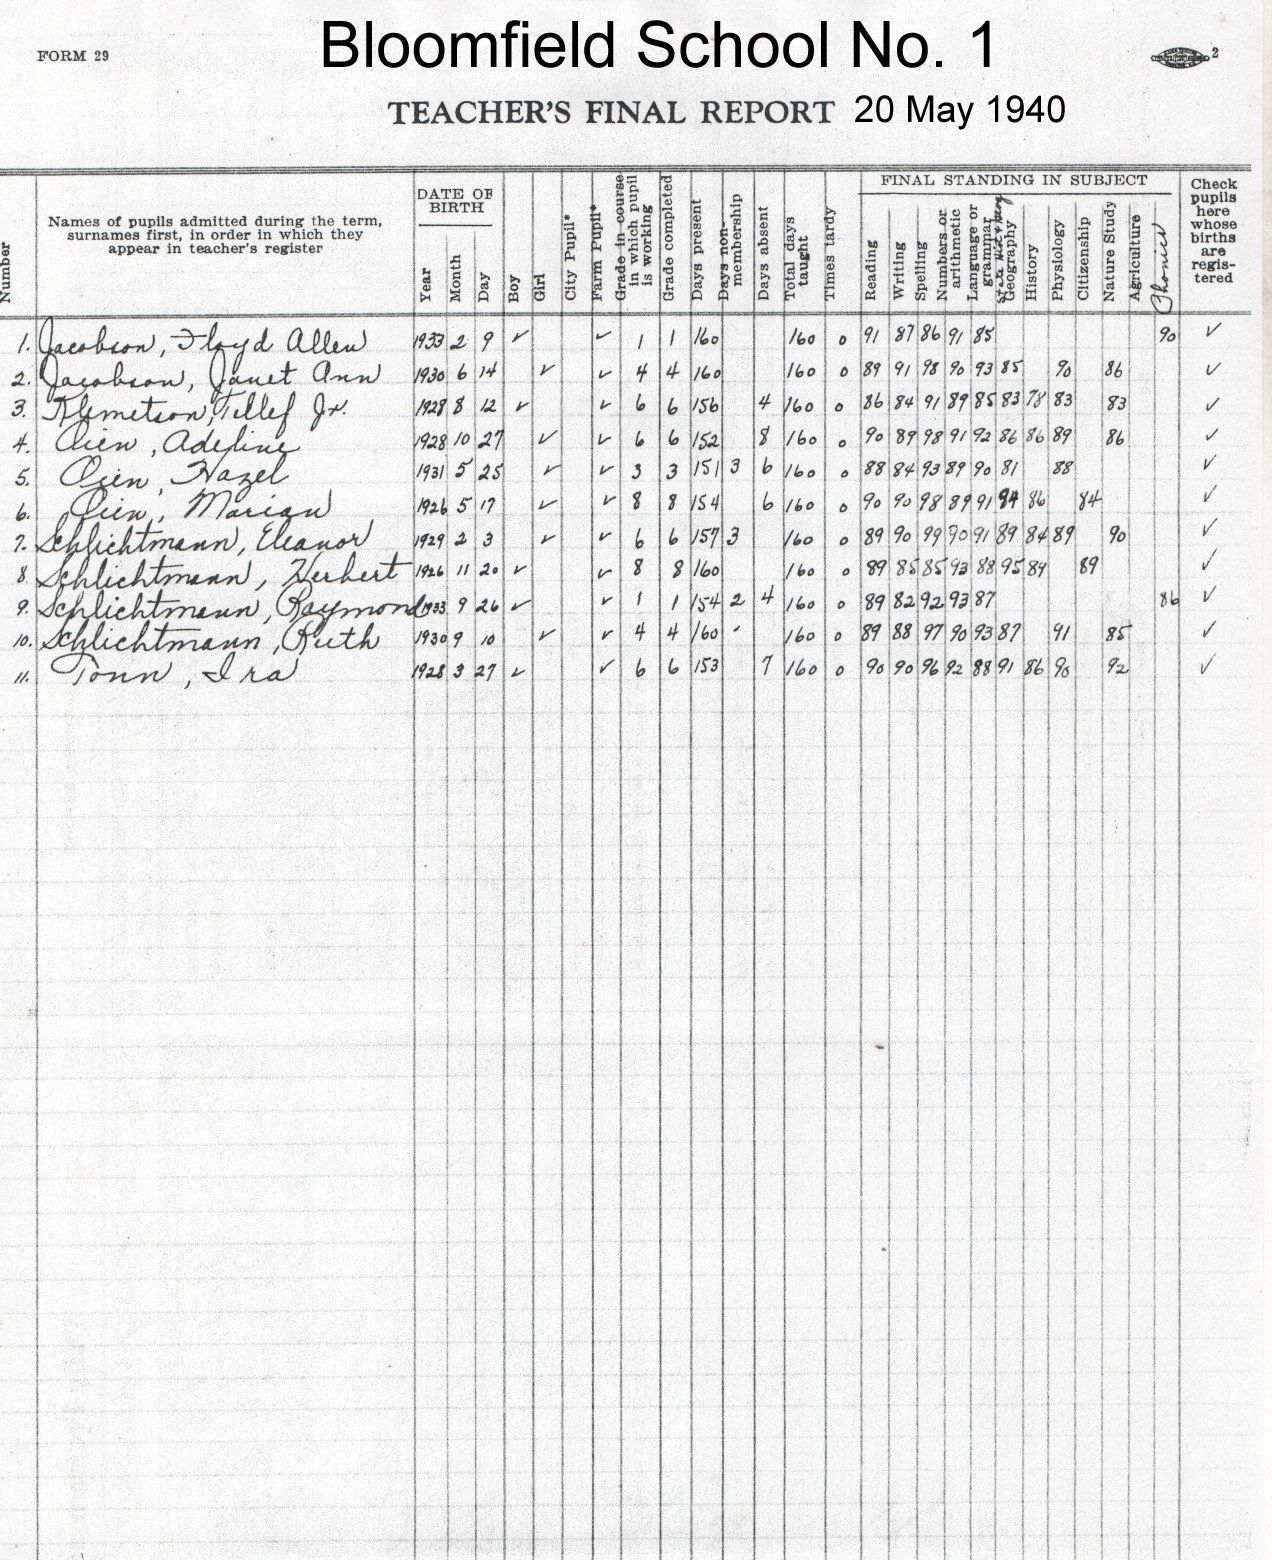 Bloomfield School No. 1
FORM 29
2
TEACHER'S FINAL REPORT 20 May 1940
Number
Names of pupils admitted during the term, surnames first, in order in which they appear in teacher's register
DATE OF BIRTH
Year Month Day
Boy
Girl
City Pupil*
Farm Pupil*
Grade in course in which pupil is working
Grade completed
Days present
Days non-membership
Days absent
Total days taught
Times tardy
FINAL STANDING IN SUBJECT
Reading
Writing
Spelling
Numbers or arithmetic
Language or grammar
State Hist & Geography
History
Physiology
Citizenship
Nature Study
Agriculture
Phonics
Check pupils here whose births are registered
1. Jacobson, Floyd Allen 1933 2 9 ✓ ✓ 1 1 160 160 0 91 87 86 91 85 90 ✓
2. Jacobson, Janet Ann 1930 6 14 ✓ ✓ 4 4 160 160 0 89 91 98 90 93 85 90 86 ✓
3. Klemetson, Tellef Jr. 1928 8 12 ✓ ✓ 6 6 156 4 160 0 86 84 91 89 85 83 78 83 83 ✓
4. Oien, Adeline 1928 10 27 ✓ ✓ 6 6 152 8 160 0 90 89 98 91 92 86 86 89 86 ✓
5. Oien, Hazel 1931 5 25 ✓ ✓ 3 3 151 3 6 160 0 88 84 93 89 90 81 88 ✓
6. Oien, Marian 1926 5 17 ✓ ✓ 8 8 154 6 160 0 90 90 98 89 91 94 86 84 ✓
7. Schlichtmann, Eleanor 1929 2 3 ✓ ✓ 6 6 157 3 160 0 89 90 99 90 91 89 84 89 90 ✓
8. Schlichtmann, Herbert 1926 11 20 ✓ ✓ 8 8 160 160 0 89 85 85 93 88 95 89 89 ✓
9. Schlichtmann, Raymond 1933 9 26 ✓ ✓ 1 1 154 2 4 160 0 89 82 92 93 87 86 ✓
10. Schlichtmann, Ruth 1930 9 10 ✓ ✓ 4 4 160 160 0 89 88 97 90 93 87 91 85 ✓
11. Tonn, Ira 1928 3 27 ✓ ✓ 6 6 153 7 160 0 90 90 96 92 88 91 86 90 92 ✓